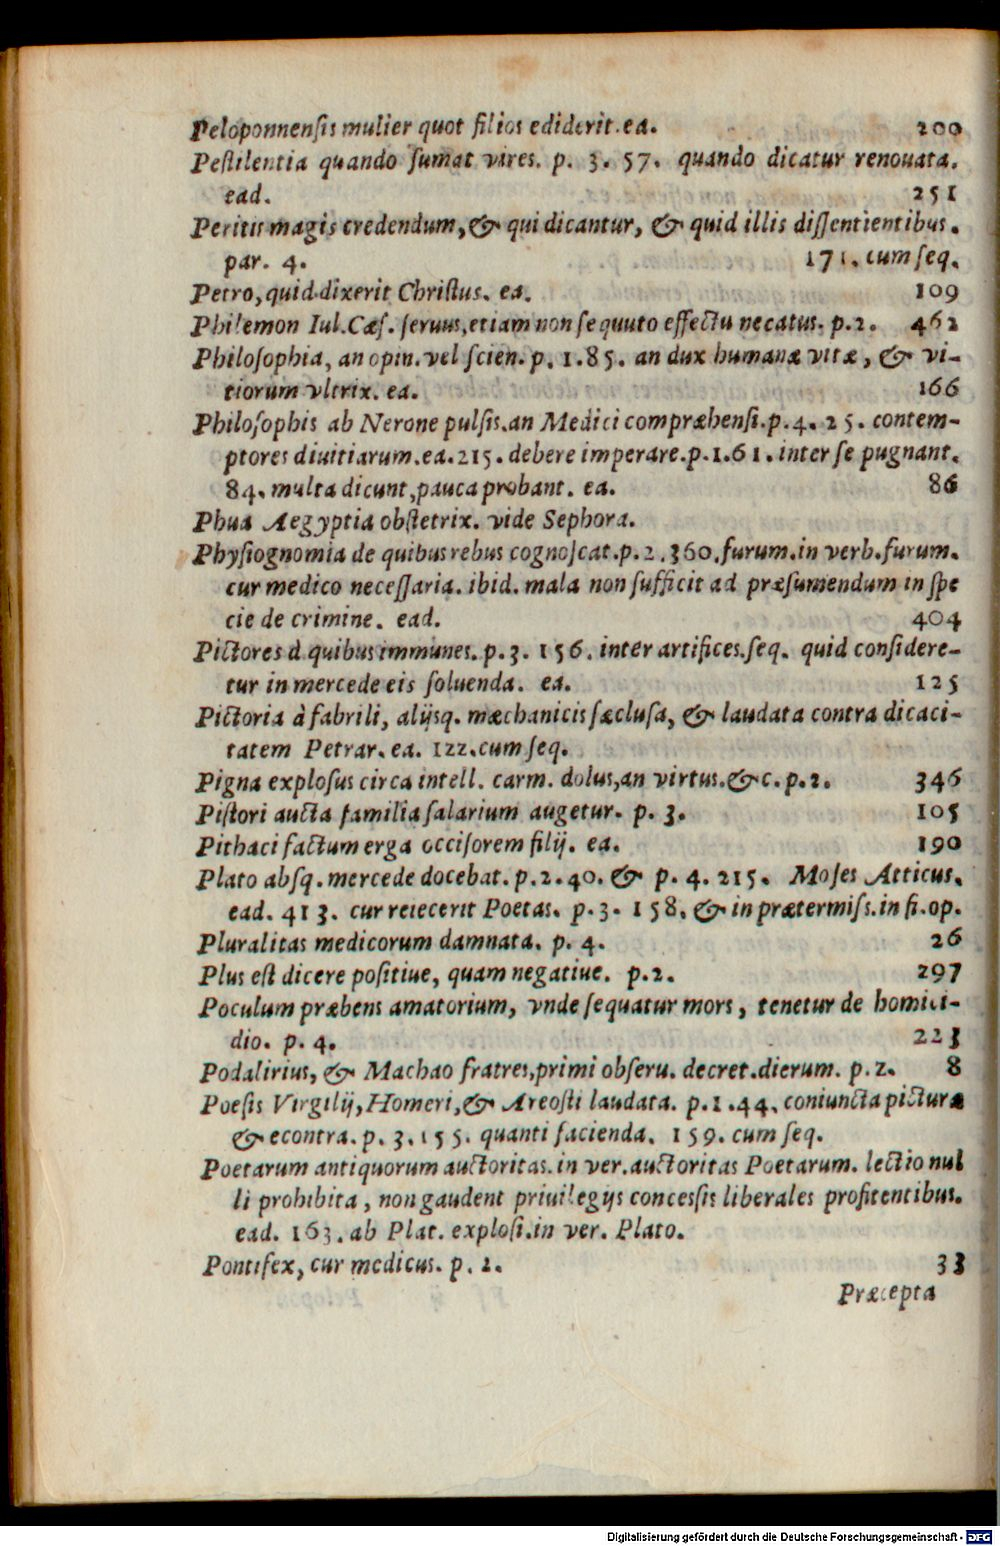 Peloponnensis mulier quot filios ediderit. ea. 200
Pestilentia quando sumat vires. p. 3. 57. quando dicatur renouata.
ead. 251
Peritis magis credendum, & qui dicantur, & quid illis dissentientibus.
par. 4. 171. cum seq.
Petro, quid dixerit Christus. ea. 109
Philemon Iul. Cæs. seruus, etiam non sequuto effectu necatus. p. 2. 462
Philosophia, an opin. vel scien. p. 1. 85. an dux humanæ vitæ, & vi-
tiorum vltrix. ea. 166
Philosophis ab Nerone pulsis. an Medici compræhensi. p. 4. 25. contem-
ptores diuitiarum. ea. 215. debere imperare. p. 1. 61. inter se pugnant.
84. multa dicunt, pauca probant. ea. 86
Phua Aegyptia obstetrix. vide Sephora.
Physiognomia de quibus rebus cognoscat. p. 2. 360. furum. in verb. furum.
cur medico necessaria. ibid. mala non sufficit ad præsumendum in spe
cie de crimine. ead. 404
Pictores à quibus immunes. p. 3. 156. inter artifices. seq. quid considere-
tur in mercede eis soluenda. ea. 125
Pictoria à fabrili, alijsq. mæchanicis sæclusa, & laudata contra dicaci-
tatem Petrar. ea. 122. cum seq.
Pigna explosus circa intell. carm. dolus, an virtus. &c. p. 2. 346
Pistori aucta familia salarium augetur. p. 3. 105
Pithaci factum erga occisorem filij. ea. 190
Plato absq. mercede docebat. p. 2. 40. & p. 4. 215. Moses Atticus.
ead. 413. cur reiecerit Poetas. p. 3. 158. & in prætermiss. in fi. op.
Pluralitas medicorum damnata. p. 4. 26
Plus est dicere positiue, quam negatiue. p. 2. 297
Poculum præbens amatorium, vnde sequatur mors, tenetur de homici-
dio. p. 4. 223
Podalirius, & Machao fratres, primi obseru. decret. dierum. p. 2. 8
Poesis Virgilij, Homeri, & Areosti laudata. p. 1. 44. coniuncta picturæ
& econtra. p. 3. 155. quanti facienda. 159. cum seq.
Poetarum antiquorum auctoritas. in ver. auctoritas Poetarum. lectio nul
li prohibita, non gaudent priuilegijs concessis liberales profitentibus.
ead. 163. ab Plat. explosi. in ver. Plato.
Pontifex, cur medicus. p. 2. 33
Præcepta
Digitalisierung gefördert durch die Deutsche Forschungsgemeinschaft - DFG